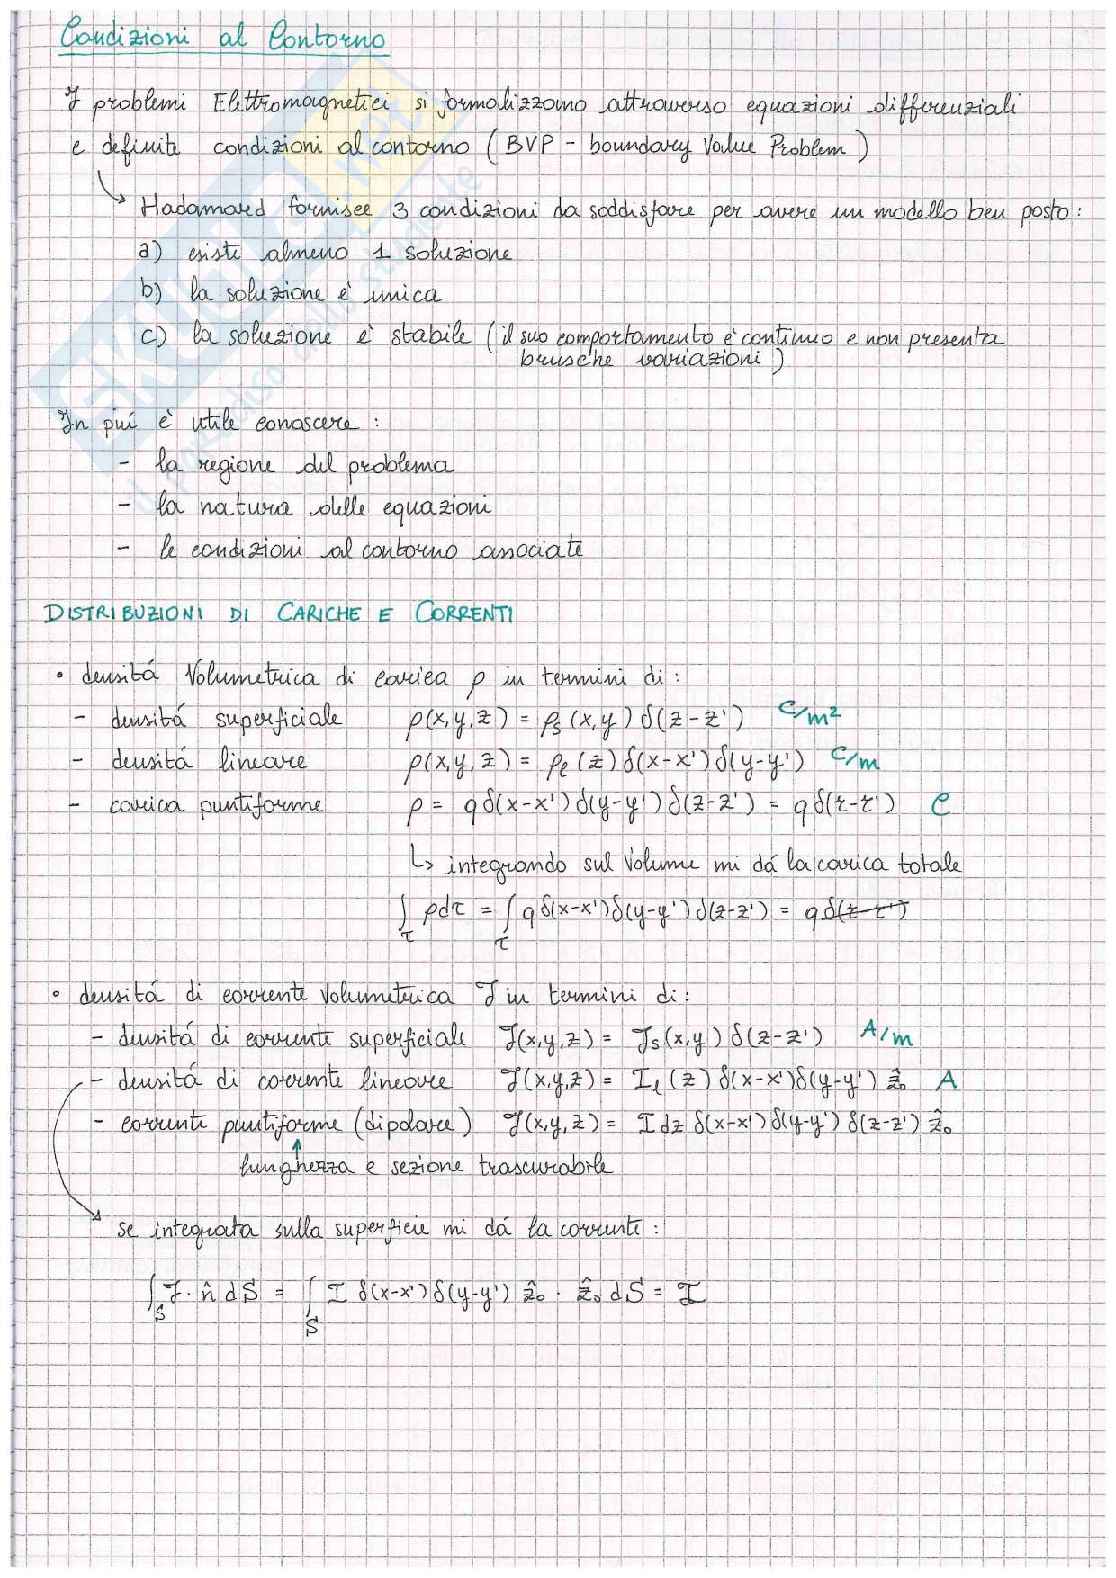 Condizioni al Contorno
I problemi Elettromagnetici si formalizzano attraverso equazioni differenziali
e definite condizioni al contorno (BVP - boundary Value Problem)
↳ Hadamard fornisce 3 condizioni da soddisfare per avere un modello ben posto:
a) esiste almeno 1 soluzione
b) la soluzione é unica
c) la soluzione é stabile (il suo comportamento é continuo e non presenta
brusche variazioni)
In piú é utile conoscere:
- la regione del problema
- la natura delle equazioni
- le condizioni al contorno associate
DISTRIBUZIONI DI CARICHE E CORRENTI
• densitá Volumetrica di carica ρ in termini di:
- densitá superficiale ρ(x,y,z) = ρs(x,y) δ(z-z') C/m²
- densitá lineare ρ(x,y,z) = ρe(z) δ(x-x') δ(y-y') C/m
- carica puntiforme ρ = q δ(x-x') δ(y-y') δ(z-z') = q δ(r-r') C
↳ integrando sul Volume mi dá la carica totale
∫τ ρdτ = ∫τ q δ(x-x') δ(y-y') δ(z-z') = q δ(r-r')
• densitá di corrente Volumetrica J in termini di:
- densitá di corrente superficiale J(x,y,z) = Js(x,y) δ(z-z') A/m
- densitá di corrente lineare J(x,y,z) = Il(z) δ(x-x') δ(y-y') ẑo A
- corrente puntiforme (dipolare) J(x,y,z) = I dz δ(x-x') δ(y-y') δ(z-z') ẑo
lunghezza e sezione trascurabile
se integrata sulla superficie mi dá la corrente:
∫S J · n̂ dS = ∫S I δ(x-x') δ(y-y') ẑo · ẑo dS = I